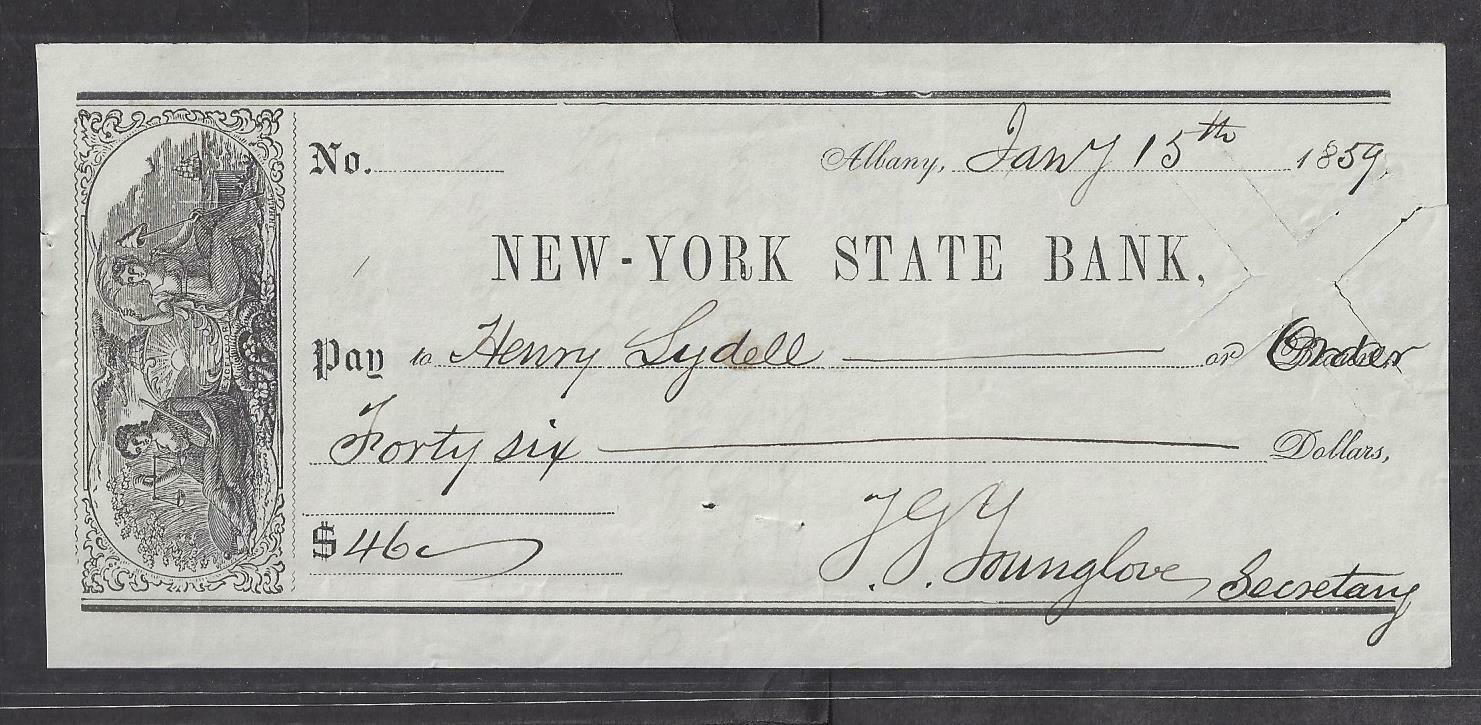 No. Albany, Jany 15th 1859
NEW-YORK STATE BANK,
Pay to Henry Lydell or Order
Forty six Dollars,
$ 46
T. G. Younglove, Secretary